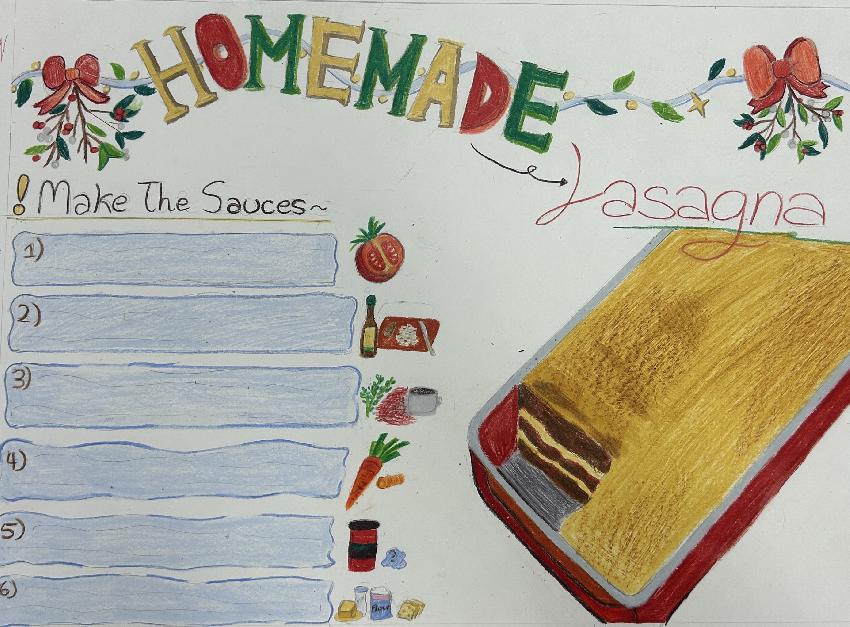 HOMEMADE
Lasagna
! Make The Sauces~
1)
2)
3)
4)
5)
6)
Flour